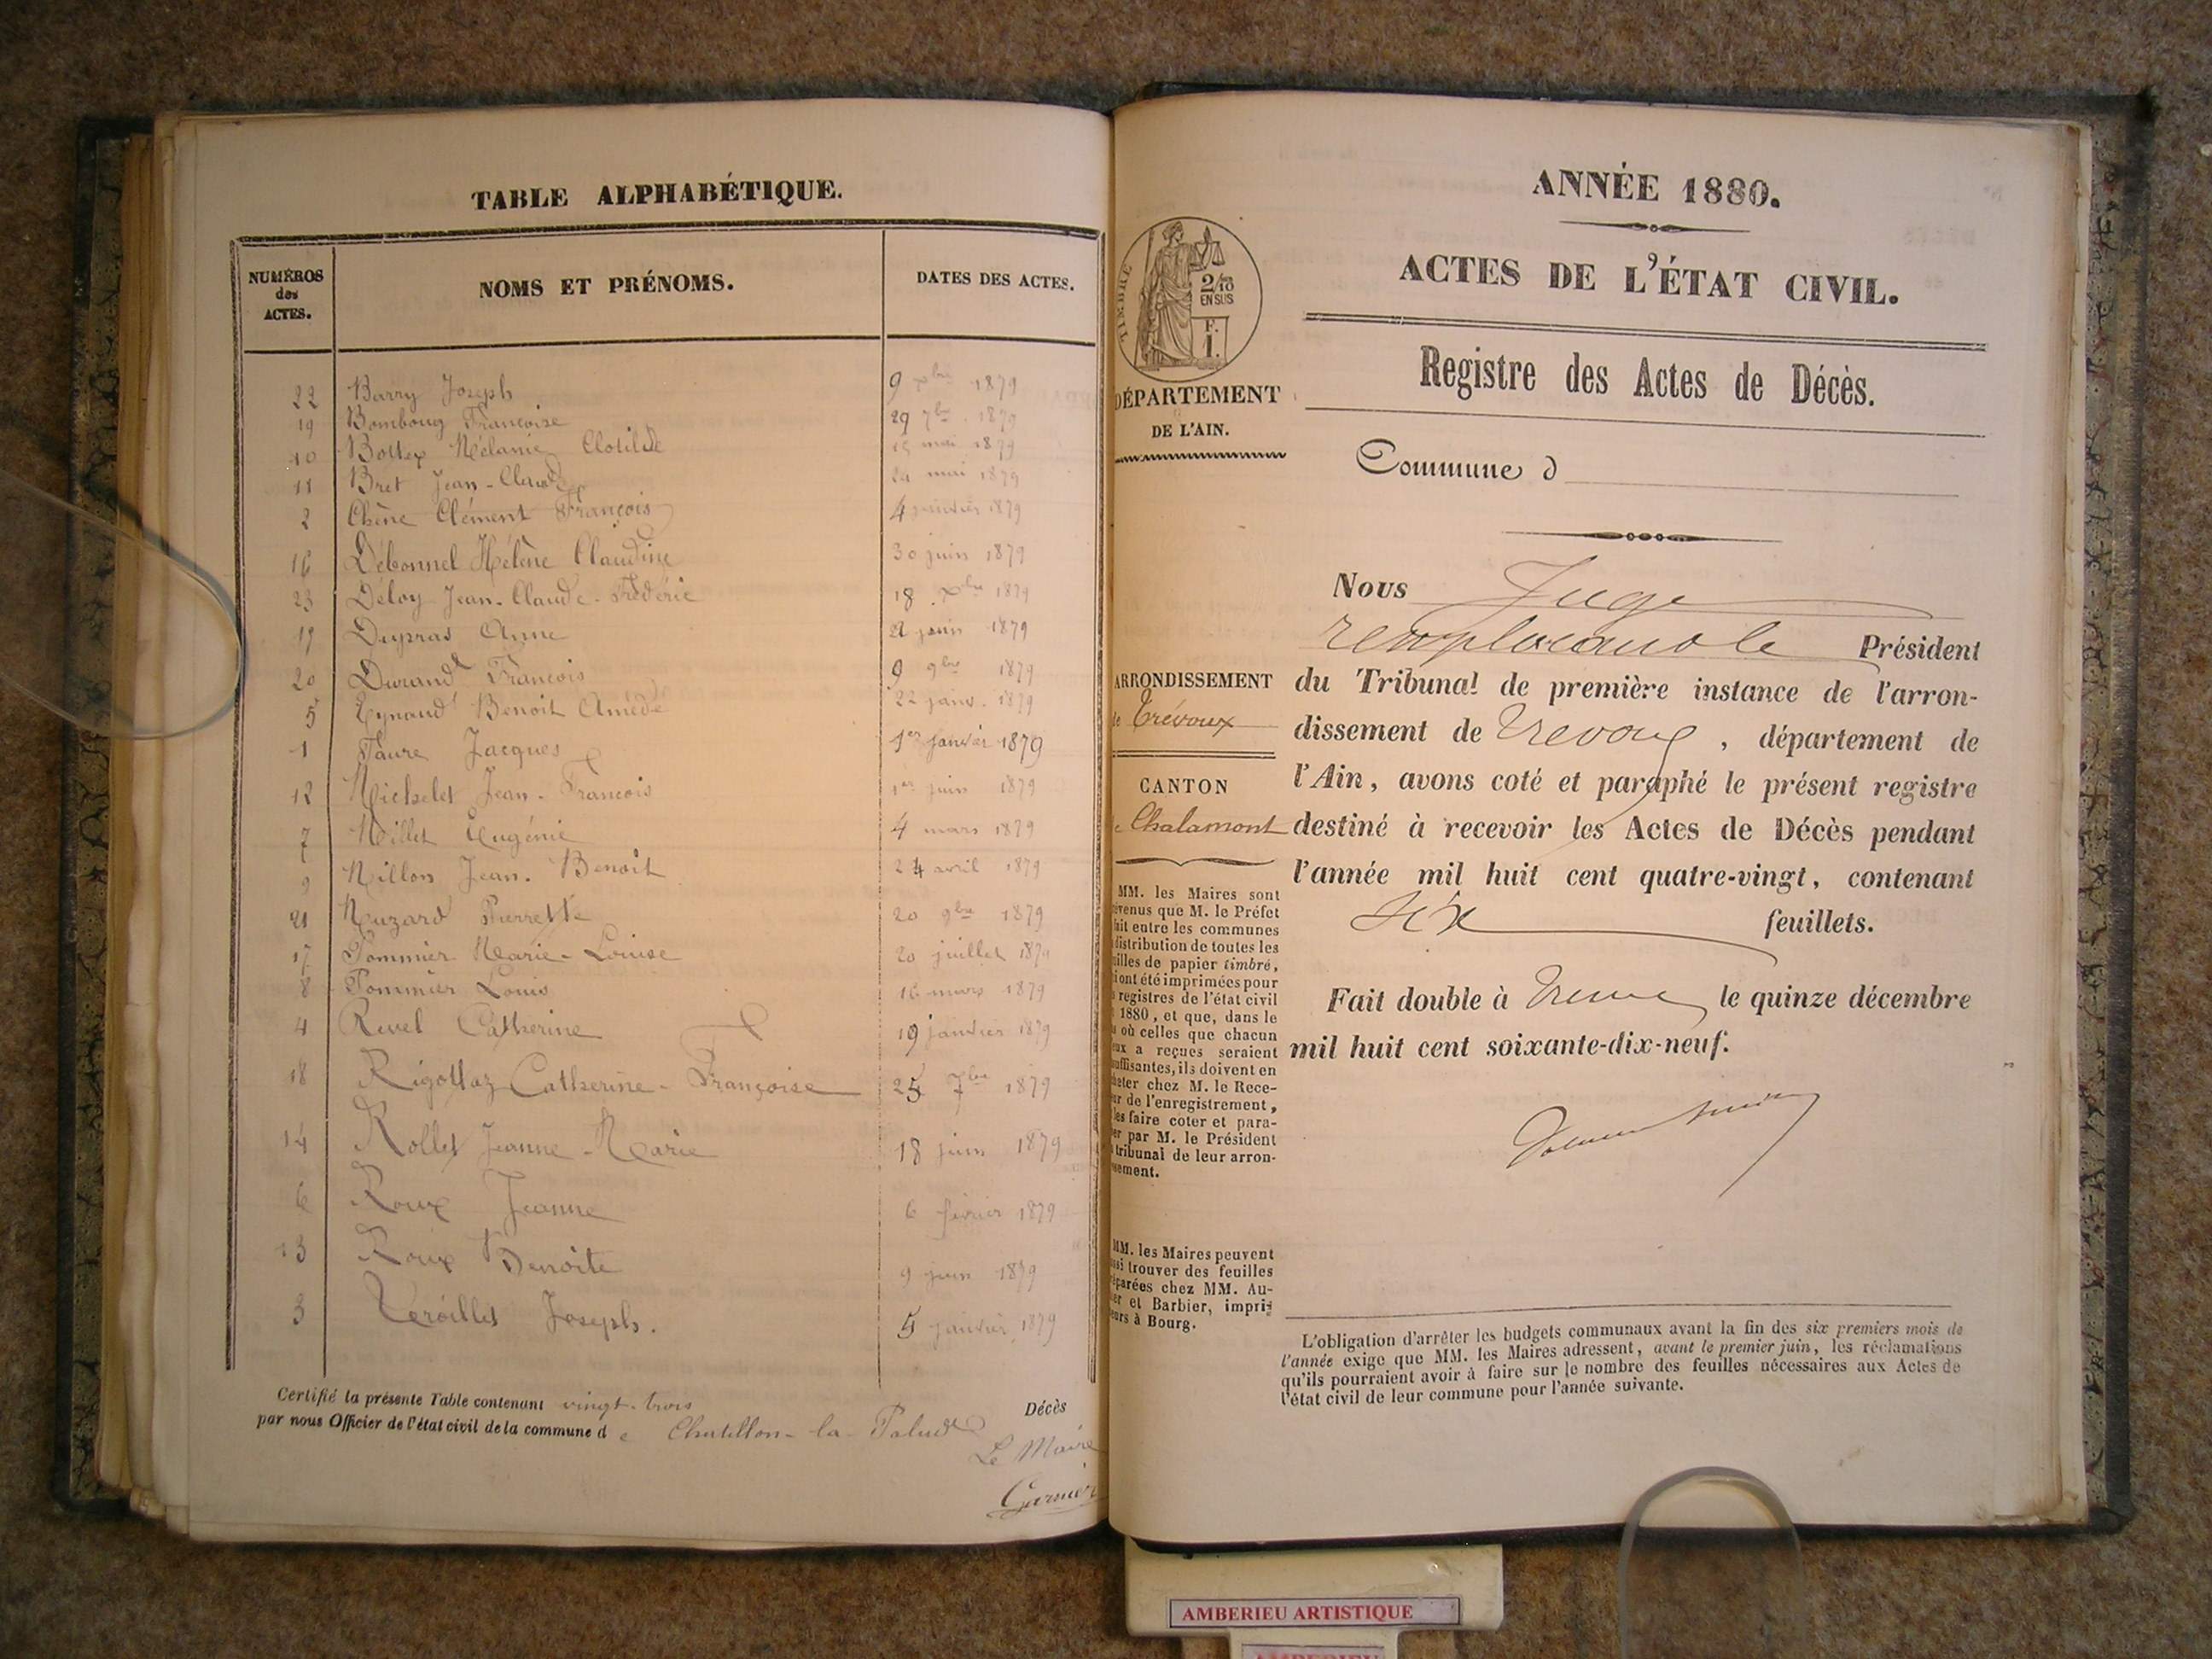 TABLE ALPHABÉTIQUE.
NUMÉROS des ACTES. NOMS ET PRÉNOMS. DATES DES ACTES.
22 Barry Joseph 9 xbre 1879
19 Françoise 29 7bre 1879
10 Bottex Mélanie Clotilde 15 mai 1879
11 Bret Jean-Claude mai 1879
2 Chêne Clément François 4 janvier 1879
16 Débonnel Hélène Claudine 30 juin 1879
23 Déloy Jean-Claude-Frédéric 18 xbre 1879
Dupras Anne juin 1879
20 Durand François 9 9bre 1879
5 Eynaud Benoit Amédé 22 janv. 1879
1 Faure Jacques 1er janvier 1879
12 Michelet Jean-François 1er juin 1879
7 Millet Eugénie 4 mars 1879
9 Millon Jean-Benoit 24 avril 1879
21 Muzard Pierrette 20 9bre 1879
17 Pommier Marie-Louise 20 juillet 1879
8 Pommier Louis 16 mars 1879
4 Revel Catherine 19 janvier 1879
18 Rigottaz Catherine-Françoise 25 7bre 1879
14 Rollet Jeanne-Marie 18 juin 1879
6 Roux Jeanne 6 février 1879
13 Roux Benoite 9 juin 1879
3 Joseph. 5 janvier 1879
Certifié la présente Table contenant vingt-trois Décès
par nous Officier de l'état civil de la commune de Chatillon-la-Palud
Le Maire
Garnier
TIMBRE
2/10
EN SUS
F.
1.
DÉPARTEMENT
DE L'AIN.
ARRONDISSEMENT
de Trévoux
CANTON
Chalamont
MM. les Maires sont
que M. le Préfet
entre les communes
distribution de toutes les
de papier timbré,
ont été imprimées pour
registres de l'état civil
1880, et que, dans le
où celles que chacun
a reçues seraient
ils doivent en
chez M. le Rece-
de l'enregistrement,
les faire coter et para-
par M. le Président
tribunal de leur arron-
MM. les Maires peuvent
trouver des feuilles
chez MM. Au-
et Barbier, impri-
à Bourg.
ANNÉE 1880.
ACTES DE L'ÉTAT CIVIL.
Registre des Actes de Décès.
Commune d
Nous Juge
remplaçant le Président
du Tribunal de première instance de l'arron-
dissement de Trevoux, département de
l'Ain, avons coté et paraphé le présent registre
destiné à recevoir les Actes de Décès pendant
l'année mil huit cent quatre-vingt, contenant
six feuillets.
Fait double à le quinze décembre
mil huit cent soixante-dix-neuf.
L'obligation d'arrêter les budgets communaux avant la fin des six premiers mois de
l'année exige que MM. les Maires adressent, avant le premier juin, les réclamations
qu'ils pourraient avoir à faire sur le nombre des feuilles nécessaires aux Actes de
l'état civil de leur commune pour l'année suivante.
AMBERIEU ARTISTIQUE
AMBERIEU